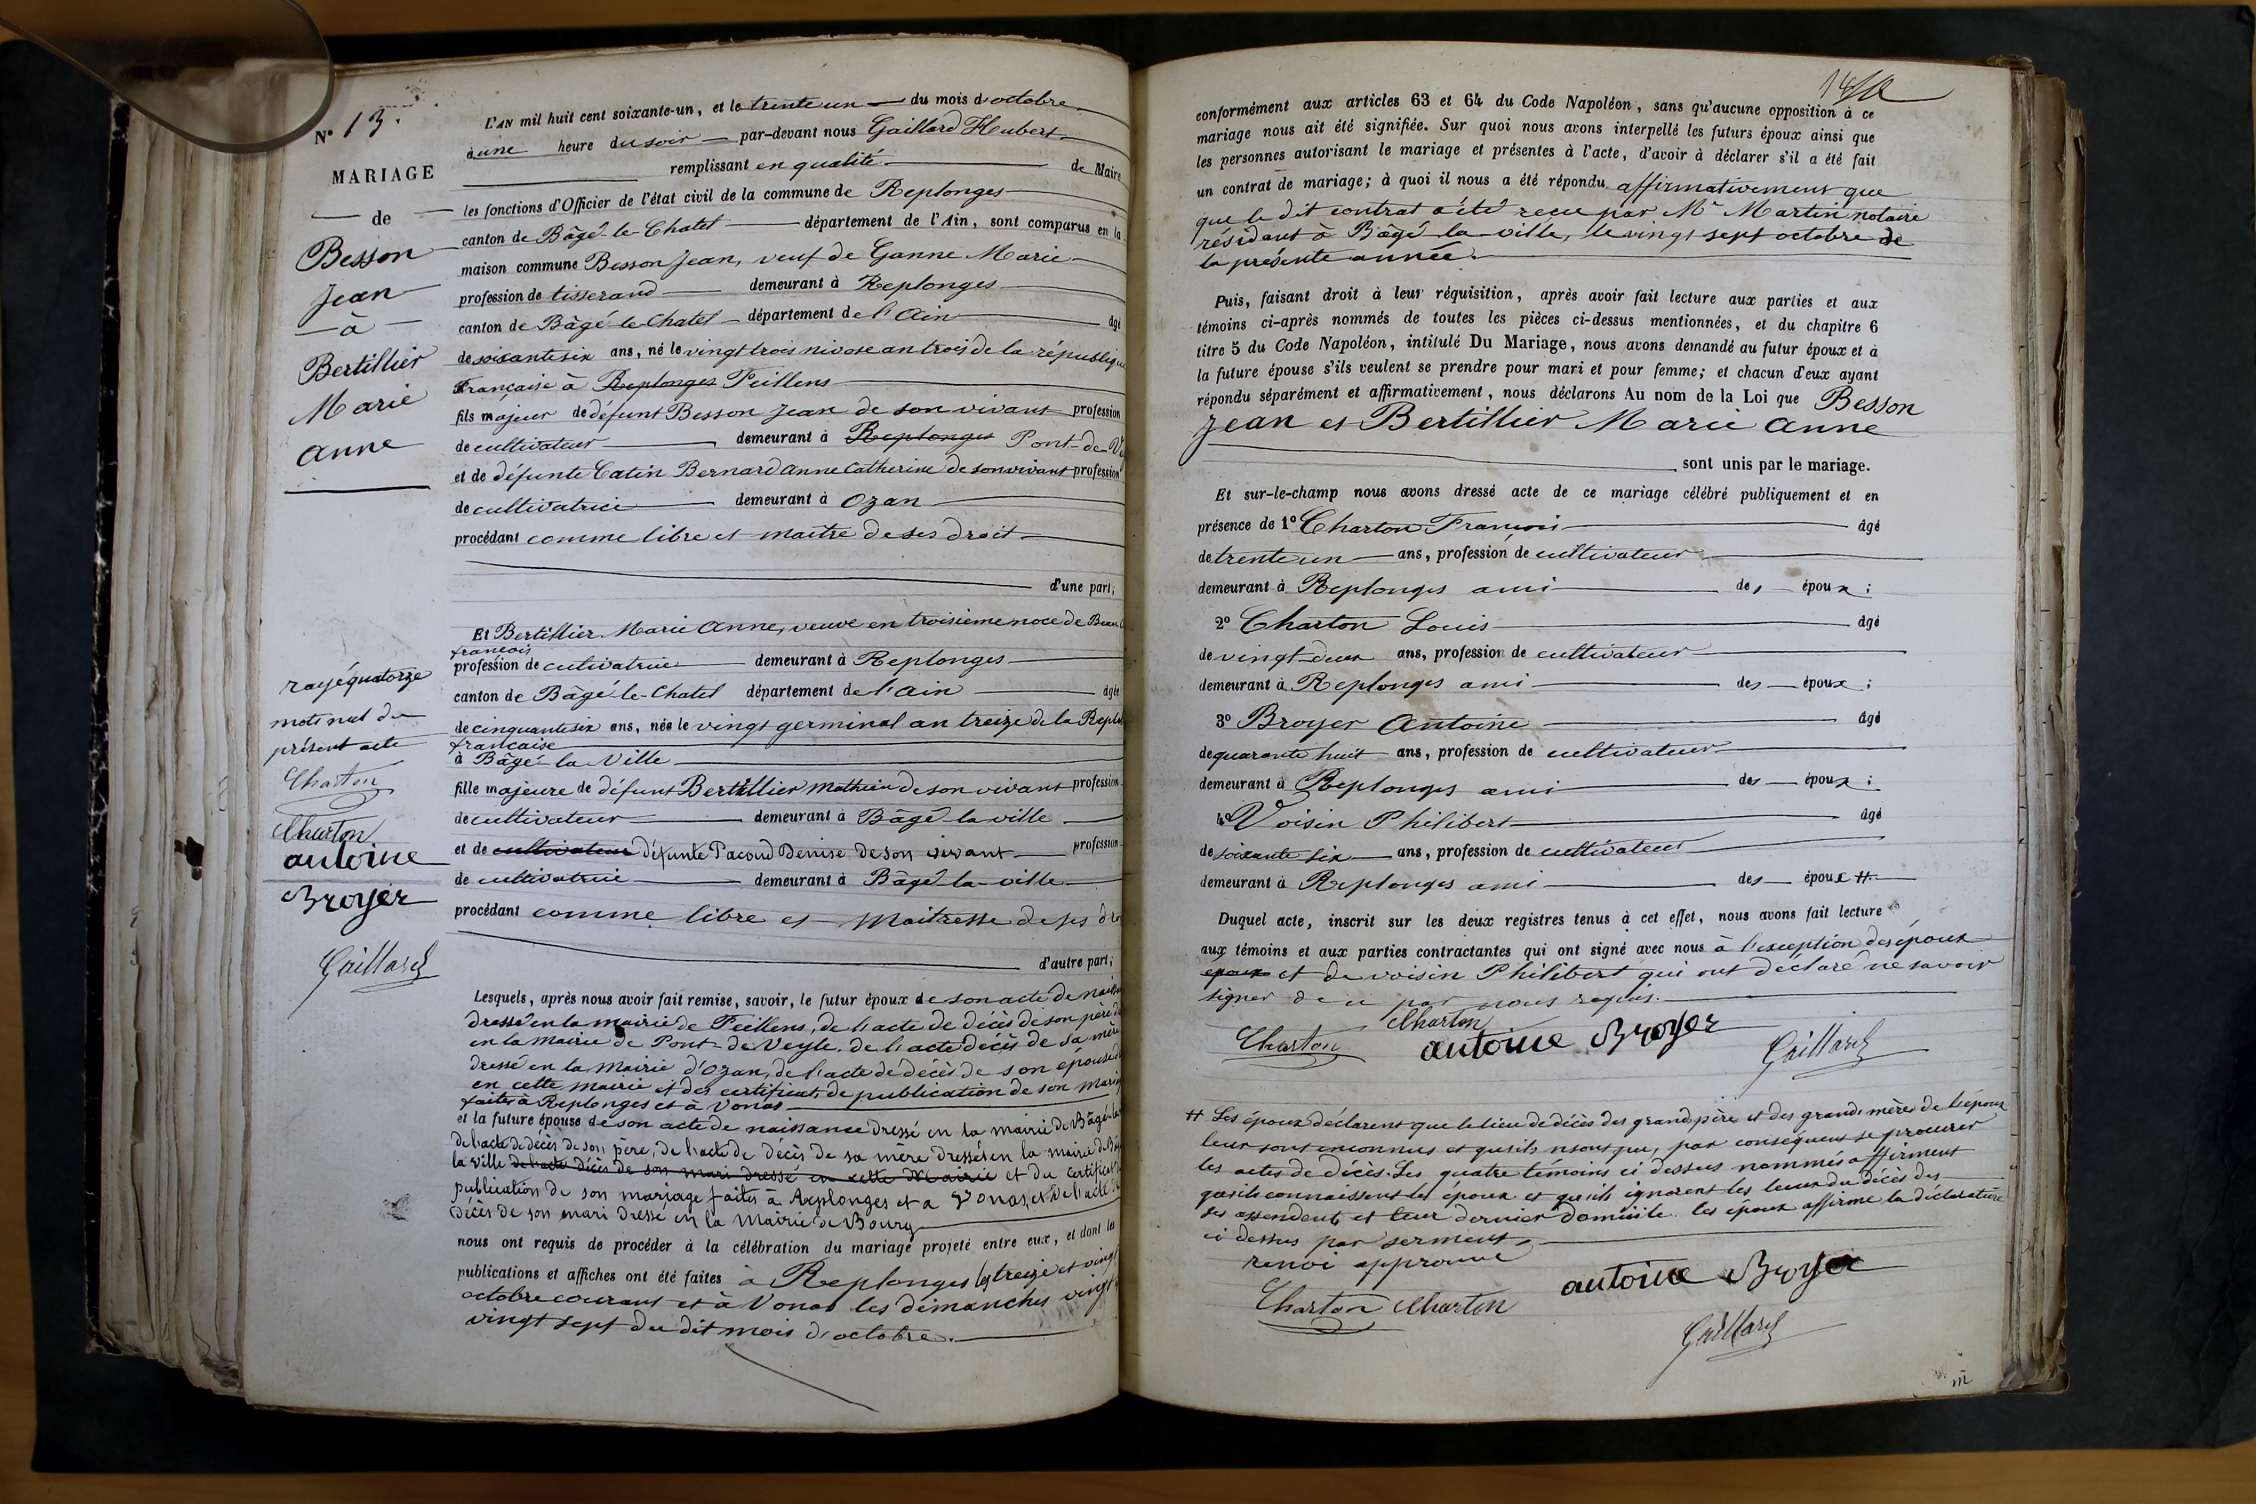 N° 13.
MARIAGE
de
Besson
Jean
à
Bertillier
Marie
anne
rayé quatorze
mots nul du
présent acte
Charton
Charton
antoine
Broyer
Gaillard
L'AN mil huit cent soixante-un, et le trente un du mois d'octobre
à une heure du soir par-devant nous Gaillard Hubert
remplissant en qualité de Maire
les fonctions d'Officier de l'état civil de la commune de Replonges
canton de Bâgé-le-Chatel département de l'Ain, sont comparus en la
maison commune Besson Jean, veuf de Ganne Marie
profession de tisserand demeurant à Replonges
canton de Bâgé-le-Chatel département de l'Ain âgé
de soixante six ans, né le vingt trois nivose an trois de la république
française à Replonges Feillens
fils majeur de défunt Besson Jean de son vivant profession
de cultivateur demeurant à Replonges Pont-de-V
et de défunte Catin Bernard Anne Catherine de son vivant profession
de cultivatrice demeurant à Ozan
procédant comme libre et maitre de ses droit
d'une part;
Et Bertillier Marie Anne, veuve en troisième noce de
françois
profession de cultivatrice demeurant à Replonges
canton de Bâgé-le-Chatel département de l'Ain âgée
de cinquante six ans, née le vingt germinal an treize de la Repub
française
à Bâgé-la-Ville
fille majeure de défunt Bertillier Mathieu de son vivant profession
de cultivateur demeurant à Bâgé-la-ville
et de cultivateur défunte Pacoud Denise de son vivant profession
de cultivatrice demeurant à Bâgé-la-ville
procédant comme libre et Maitresse de ses dro
d'autre part;
Lesquels, après nous avoir fait remise, savoir, le futur époux de son acte de naiss
dressé en la mairie de Feillens, de l'acte de décès de son père d
en la mairie de Pont-de-Veyle. de l'acte décès de sa mère
dressé en la Mairie d'Ozan, de l'acte de décès de son épouse d
en cette mairie et des certificat, de publication de son mariag
faites à Replonges et à Vonas
et la future épouse de son acte de naissance dressé en la mairie de Bâgé-la
de l'acte de décès de son père, de l'acte de décès de sa mère dressés en la mairie de Bâg
la ville de l'acte décès de son mari dressé en cette Mairie et du certificat de
publication de son mariage faites à Replonges et à Vonas, et de l'acte de
décès de son mari dressé en la Mairie de Bourg
nous ont requis de procéder à la célébration du mariage projeté entre eux, et dont les
publications et affiches ont été faites à Replonges les treize et vingt
octobre courant et à Vonas les dimanches vingt
vingt sept du dit mois d'octobre.
conformément aux articles 63 et 64 du Code Napoléon, sans qu'aucune opposition à ce
mariage nous ait été signifiée. Sur quoi nous avons interpellé les futurs époux ainsi que
les personnes autorisant le mariage et présentes à l'acte, d'avoir à déclarer s'il a été fait
un contrat de mariage; à quoi il nous a été répondu affirmativement que
que le dit contrat a été reçu par Mr Martin notaire
résidant à Bâgé la ville, le vingt sept octobre de
la présente année.
Puis, faisant droit à leur réquisition, après avoir fait lecture aux parties et aux
témoins ci-après nommés de toutes les pièces ci-dessus mentionnées, et du chapitre 6
titre 5 du Code Napoléon, intitulé Du Mariage, nous avons demandé au futur époux et à
la future épouse s'ils veulent se prendre pour mari et pour femme; et chacun d'eux ayant
répondu séparément et affirmativement, nous déclarons Au nom de la Loi que Besson
Jean et Bertillier Marie Anne
sont unis par le mariage.
Et sur-le-champ nous avons dressé acte de ce mariage célébré publiquement et en
présence de 1° Charton François âgé
de trente un ans, profession de cultivateur
demeurant à Replonges ami des époux;
2° Charton Louis âgé
de vingt deux ans, profession de cultivateur
demeurant à Replonges ami des époux;
3° Broyer Antoine âgé
de quarante huit ans, profession de cultivateur
demeurant à Replonges ami des époux;
4° Voisin Philibert âgé
de soixante six ans, profession de cultivateur
demeurant à Replonges ami des époux #
Duquel acte, inscrit sur les deux registres tenus à cet effet, nous avons fait lecture
aux témoins et aux parties contractantes qui ont signé avec nous à l'exception des époux
époux et de voisin Philibert qui ont déclaré ne savoir
signer de ce par nous requis.
Charton
Charton
antoine Broyer
Gaillard
# Les époux déclarent que le lieu de décès des grand père et des grands mères de l'époux
leur sont inconnus et qu'ils n'sont pu, par conséquent se procurer
les actes de décès. Les quatre témoins ci dessus nommés affirment
qu'ils connaissent les époux et qu'ils ignorent les lieux du décès des
ses assendents et leur dernier domicile. les époux affirme la déclaration
ci dessus par serment.
renvoi approuvé
Charton Charton
antoine Broyer
Gaillard